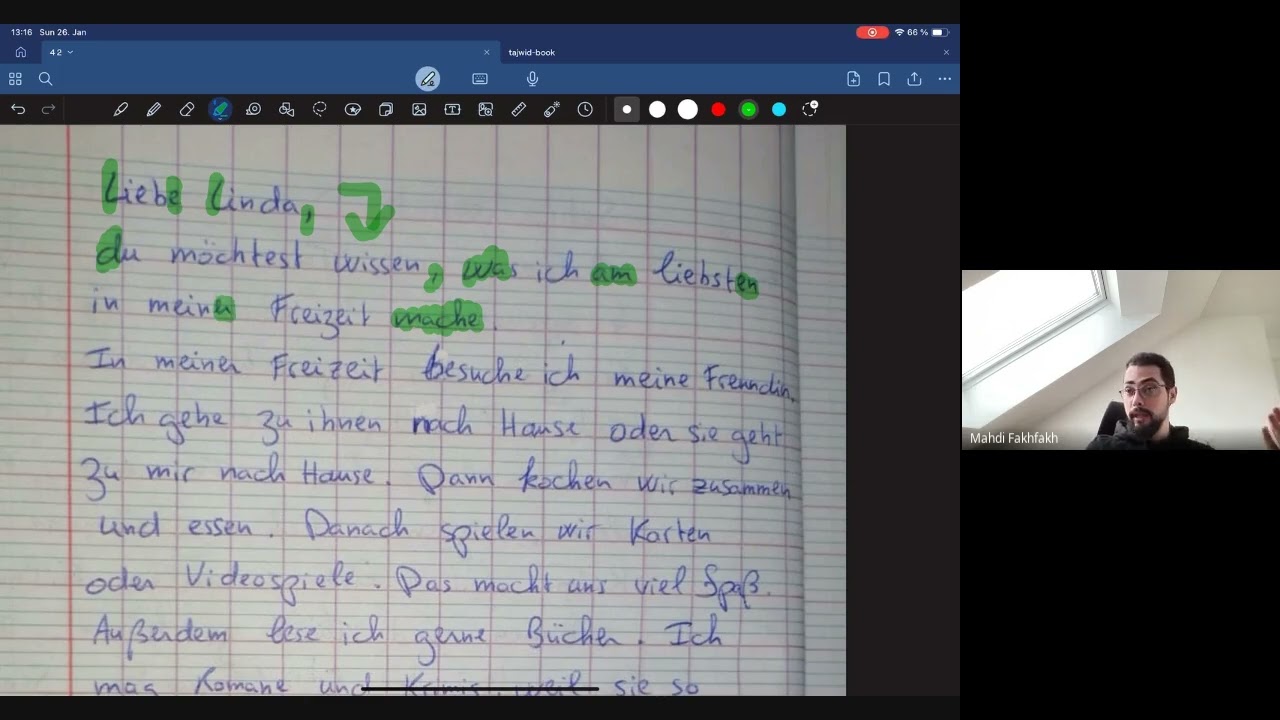 13:16 Sun 26. Jan
66 %
42
tajwid-book
Liebe Linda,
du möchtest wissen, was ich am liebsten
in meiner Freizeit mache.
In meiner Freizeit besuche ich meine Freundin.
Ich gehe zu ihnen nach Hause oder sie geht
zu mir nach Hause. Dann kochen wir zusammen
und essen. Danach spielen wir Karten
oder Videospiele. Das macht uns viel Spaß.
Außerdem lese ich gerne Bücher. Ich
mag Romane und Krimis, weil sie so
Mahdi Fakhfakh